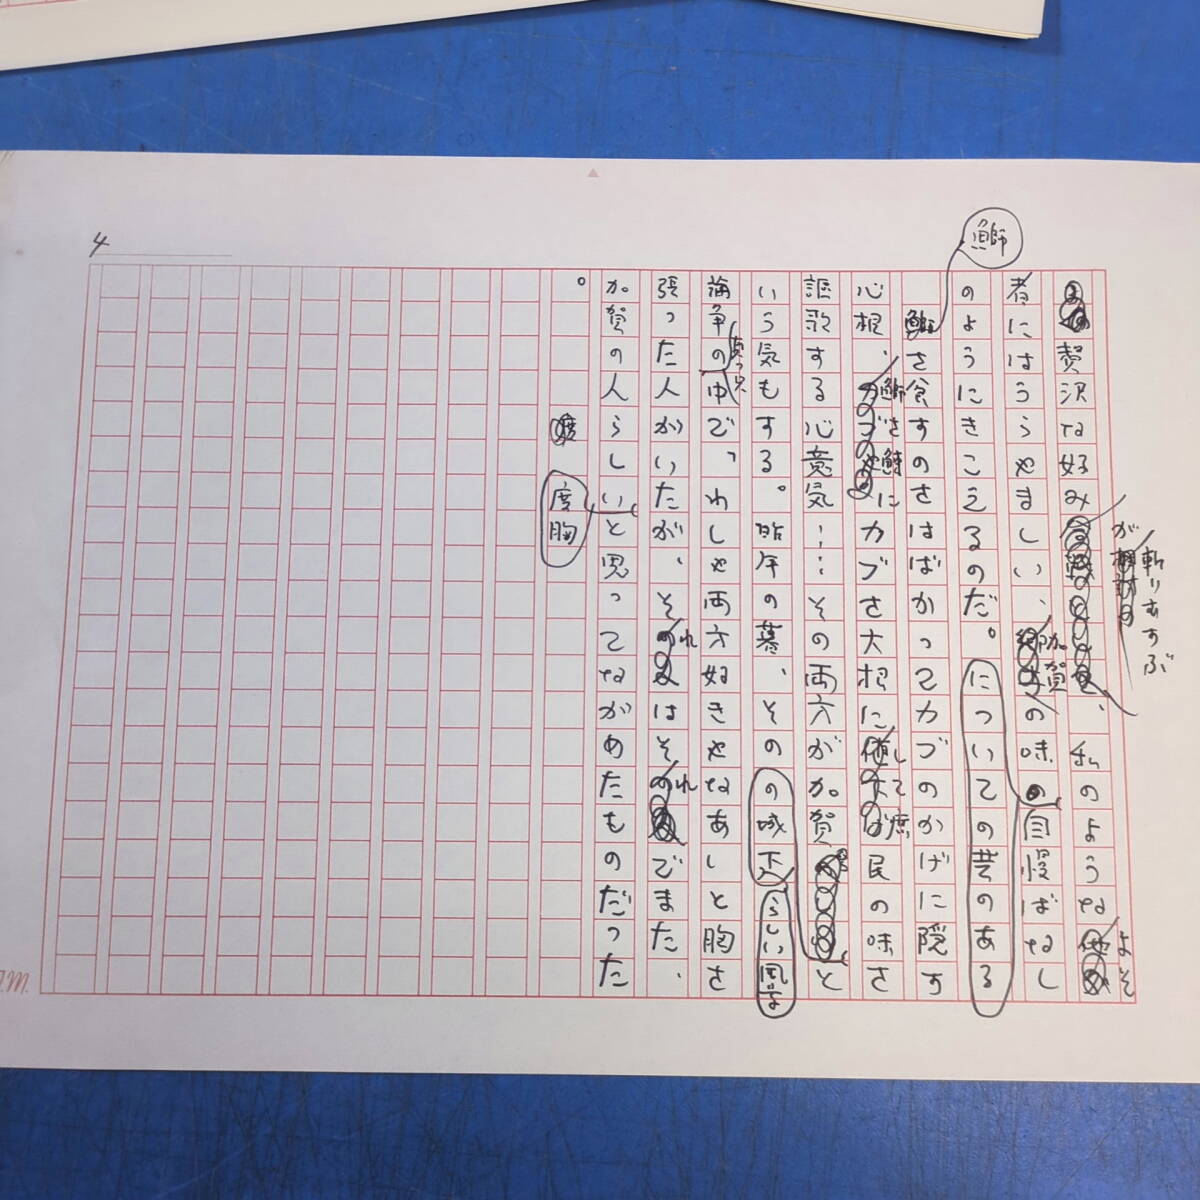 4
鰤
贅沢な好み
が
斬りむすぶ
、私のような
よそ
者にはうらやましい、
加賀
の味の自慢ばなし
のようにきこえるのだ。
についての芸のある
鰤を食すのをはばかってカブのかげに隠す
心根、
鰤を
に カブを大根に
して庶民の味を
謳歌する心意気……その両方が加賀
と
いう気もする。昨年の暮、その
の城下
らしい風な
論争の中で、わしゃ両方好きやなあしと胸を
張った人がいたが、それはそれでまた、
加賀の人らしいと思ってながめたものだった
。
度胸